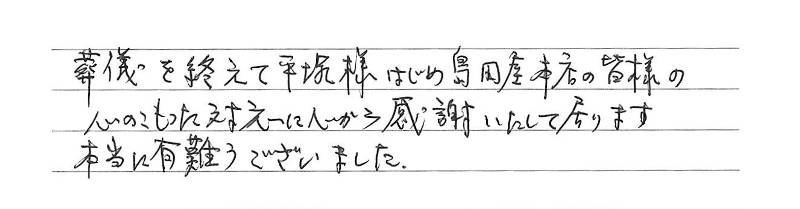 葬儀を終えて平塚様はじめ島田屋本店の皆様の
心のこもった対応に心から感謝いたして居ります
本当に有難うございました.